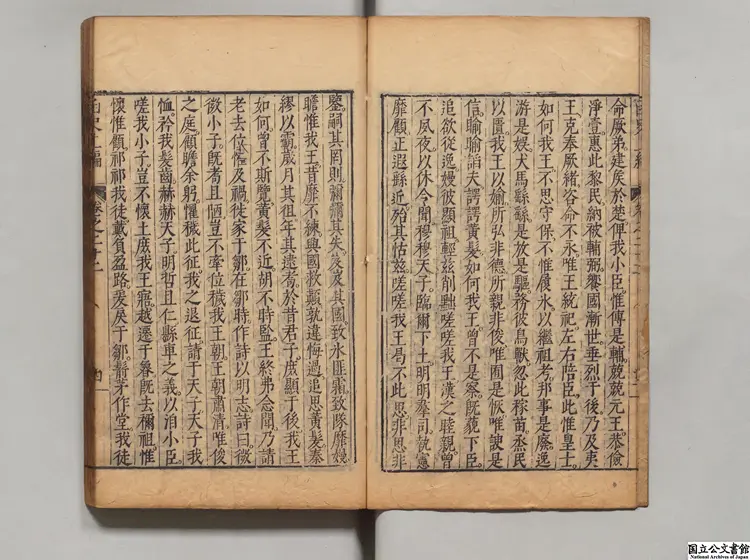 命厥弟建矦於楚俾我小臣惟傅是輔兢兢元王恭儉
淨壹惠此黎民納彼輔弼饗國漸世垂烈于後乃及夷
王克奉厥緒咨命不永唯王統祀左右陪臣此惟皇士
如何我王不思守保不惟履氷以繼祖考邦事是廢逸
游是娱犬馬繇繇是放是驅務彼鳥獸忽此稼苗烝民
以匱我王以媮所弘非德所親非俊唯囿是恢唯諛是
信睮睮諂夫諤諤黄髮如何我王曾不是察既藐下臣
追欲從逸嫚彼顯祖輕兹削黜嗟嗟我王漢之睦親曾
不夙夜以休令聞穆穆天子臨爾下土明明羣司執憲
靡顧正遐繇近殆其怙兹嗟嗟我王曷不此思非思非
鑒嗣其罔則彌彌其失岌岌其國致氷匪霜致隊靡嫚
瞻惟我王昔靡不練興國救顛孰違悔過追思黄髮秦
繆以霸歲月其徂年其逮耇於昔君子庶顯于後我王
如何曾不斯覽黄髮不近胡不時監王終弗念聞乃請
老去位恐及禍徙家于鄒在鄒時作詩以明志詩曰微
微小子既耇且陋豈不牽位穢我王朝王朝肅清唯俊
之庭顧瞻余躬懼穢此征我之退征請于天子天子我
恤矜我髮齒赫赫天子明哲且仁縣車之義以洎小臣
嗟我小子豈不懷土庶我王寤越遷于魯既去禰祖惟
懷惟顧祁祁我徒戴負盈路爰戾于鄒鬋茅作堂我徒
国立公文書館
National Archives of Japan